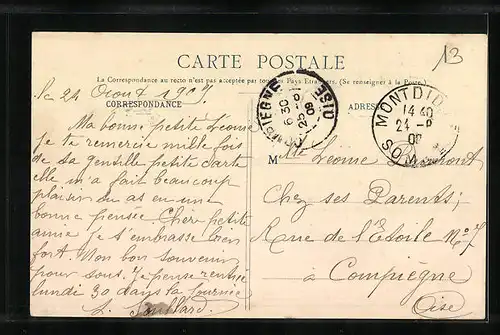 13
CARTE POSTALE
La Correspondance au recto n'est pas acceptée par tous les Pays Etrangers. (Se renseigner à la Poste.)
Le 24 Aout 1909.
CORRESPONDANCE
ADRES
COMPIEGNE OISE
6 30
25 -8
09
MONTDID SOM
14 40
24 -8
09
Ma bonne petite Léone
Je te remercie mille fois
de sa gentille petite carte
elle m'a fait beaucoup
plaisir tu as eu une
bonne pensée Chere petite
amie je t'embrasse bien
fort. Mon bon souvenir
pour tous. Je pense rentrer
lundi 30 dans la journée
L.
M lle Léone
Chez ses Parents;
Rue de l'Etoile No 7
à Compiègne
Oise